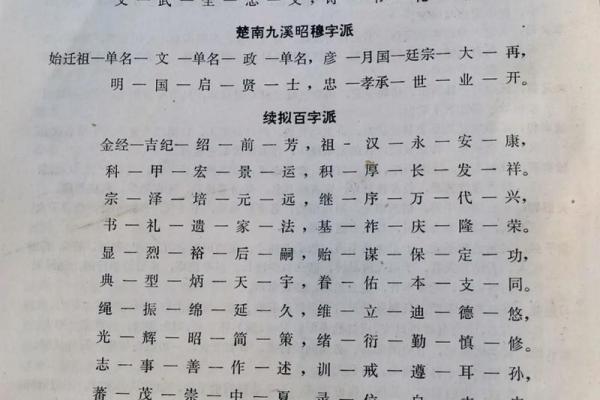 楚南九溪昭穆字派
始迁祖—单名—文—单名—政—单名，彦—月国—廷宗—大—再，
明—国—启—贤—士，忠—孝承—世—业—开。
续拟百字派
金经—吉纪—绍—前—芳，祖-汉—永—安—康，
科—甲—宏—景—运，积—厚—长—发—祥。
宗—泽—培—元—远，继—序—万—代—兴，
书—礼—遗—家—法，基—祚—庆—隆—荣。
显—烈—裕—后—嗣，贻—谋—保—定—功，
典—型—炳—天—宇，眷—佑—本—支—同。
绳—振—绵—延—久，维—立—迪—德—悠，
光—辉—昭—简—策，绪—衍—勤—慎—修。
志—事—善—作—述，训—戒—遵—耳—孙，
蕃—茂—崇—中—夏